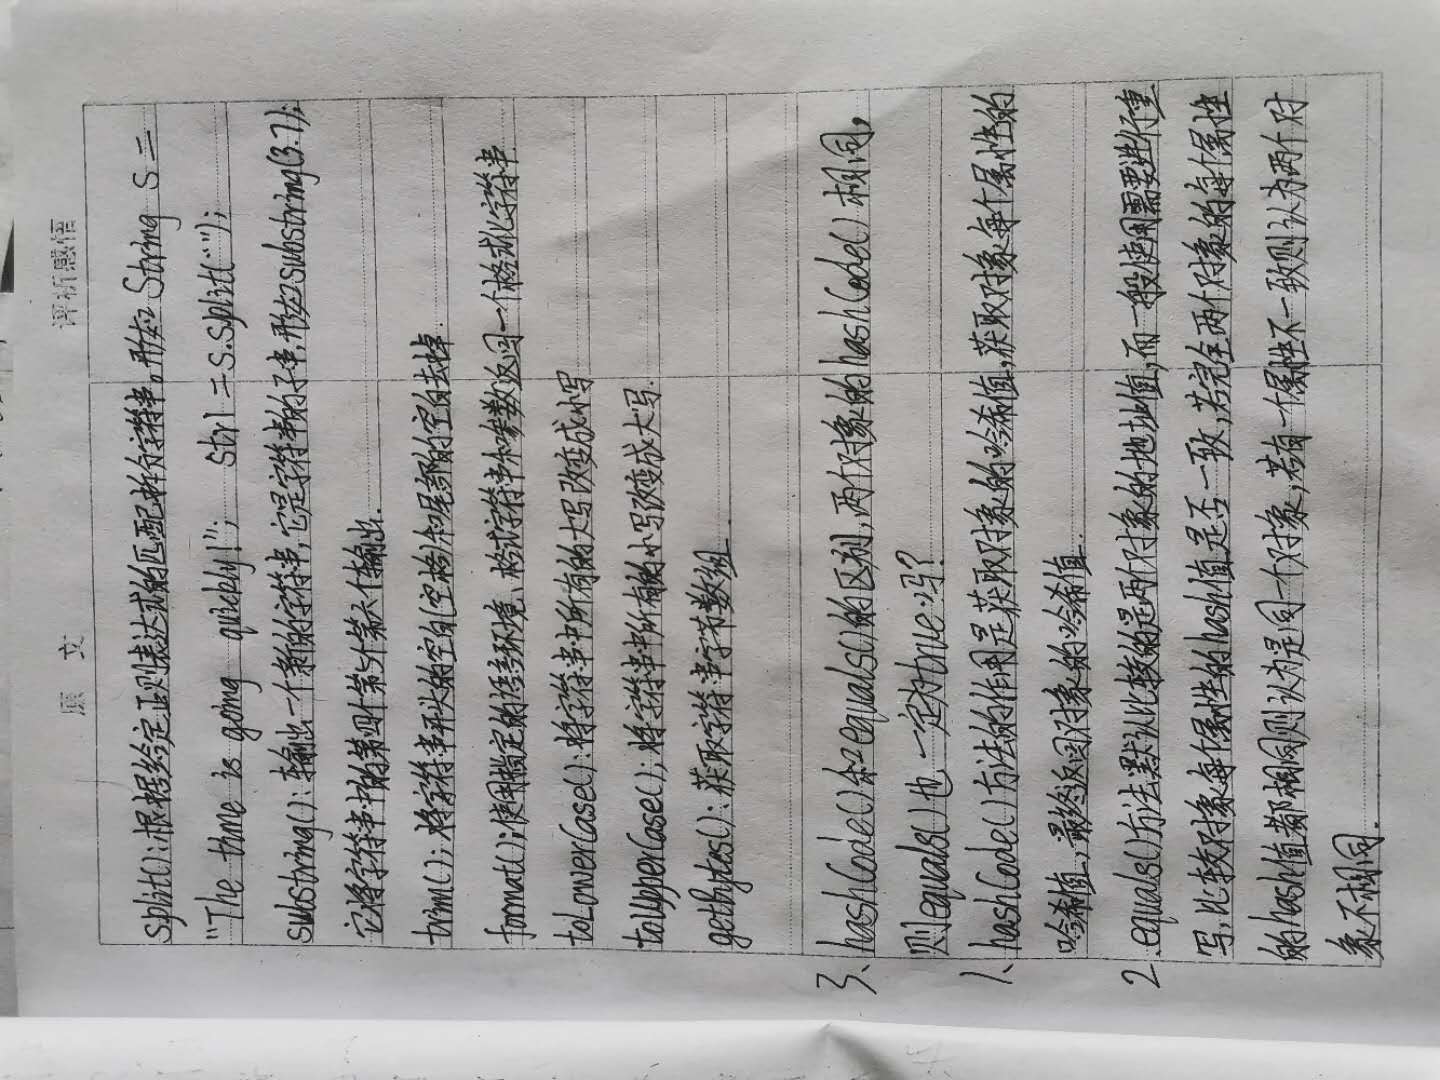 原 文 评析感悟
split():根据给定正则表达式的匹配拆分字符串。形如 String S =
"The time is going quickly!"; str1 = s.split(" ");
substring():输出一个新的字符串,它是字符串的子串,形如substring(3.7);
它将字符串中的第四个第六个输出.
trim();将字符串开头的空白(空格)和尾部的空白去掉.
format();使用指定的语言环境、格式字符串和参数返回一个格式化字符串
toLowerCase():将字符串中所有的大写改变成小写
toUpperCase();将字符串中所有的小写改变成大写.
getbytes():获取字符串字节数组.
3、hashCode()和equals()的区别,两个对象的hashCode()相同,
则equals()也一定为true吗?
1、hashCode()方法的作用是获取对象的哈希值,获取对象每个属性的
哈希值,最终返回对象的哈希值.
2.equals()方法默认比较的是两个对象的地址值,而一般使用需要进行重
写,比较对象每个属性的hash值是否一致,若完全两个对象的每个属性
的hash值都相同则认为是同一个对象,若有一个属性不一致则认为两个对
象不相同.